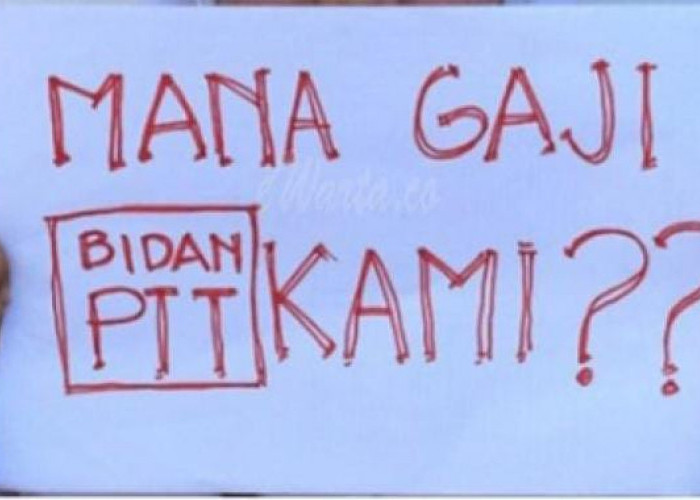 MANA GAJI
BIDAN
PTT
KAMI??
Warta.co